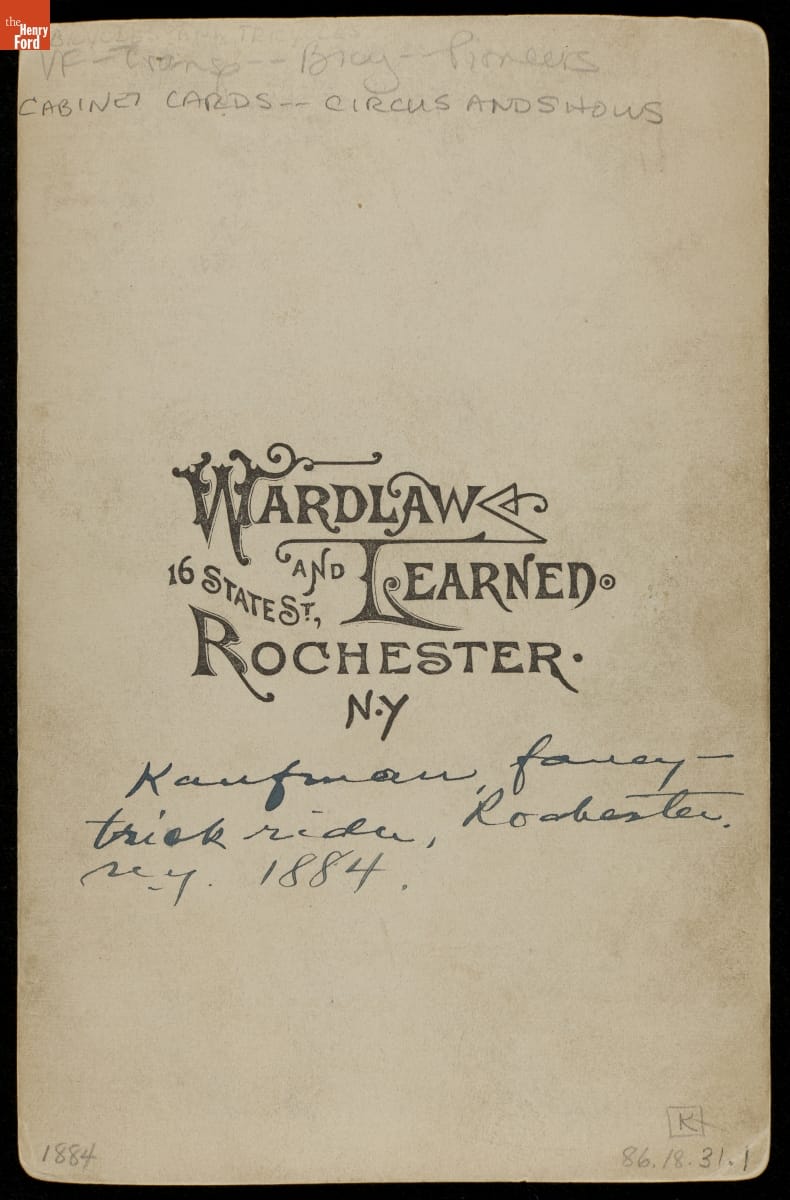 the
Henry
Ford
VF - Transp -- Bicy -- Pioneers
CABINET CARDS -- CIRCUS AND SHOWS
WARDLAW
AND LEARNED
16 STATE ST,
ROCHESTER.
N.Y
Kaufman, fancy-
trick rider, Rochester.
N.Y. 1884.
K
1884
86.18.31.1